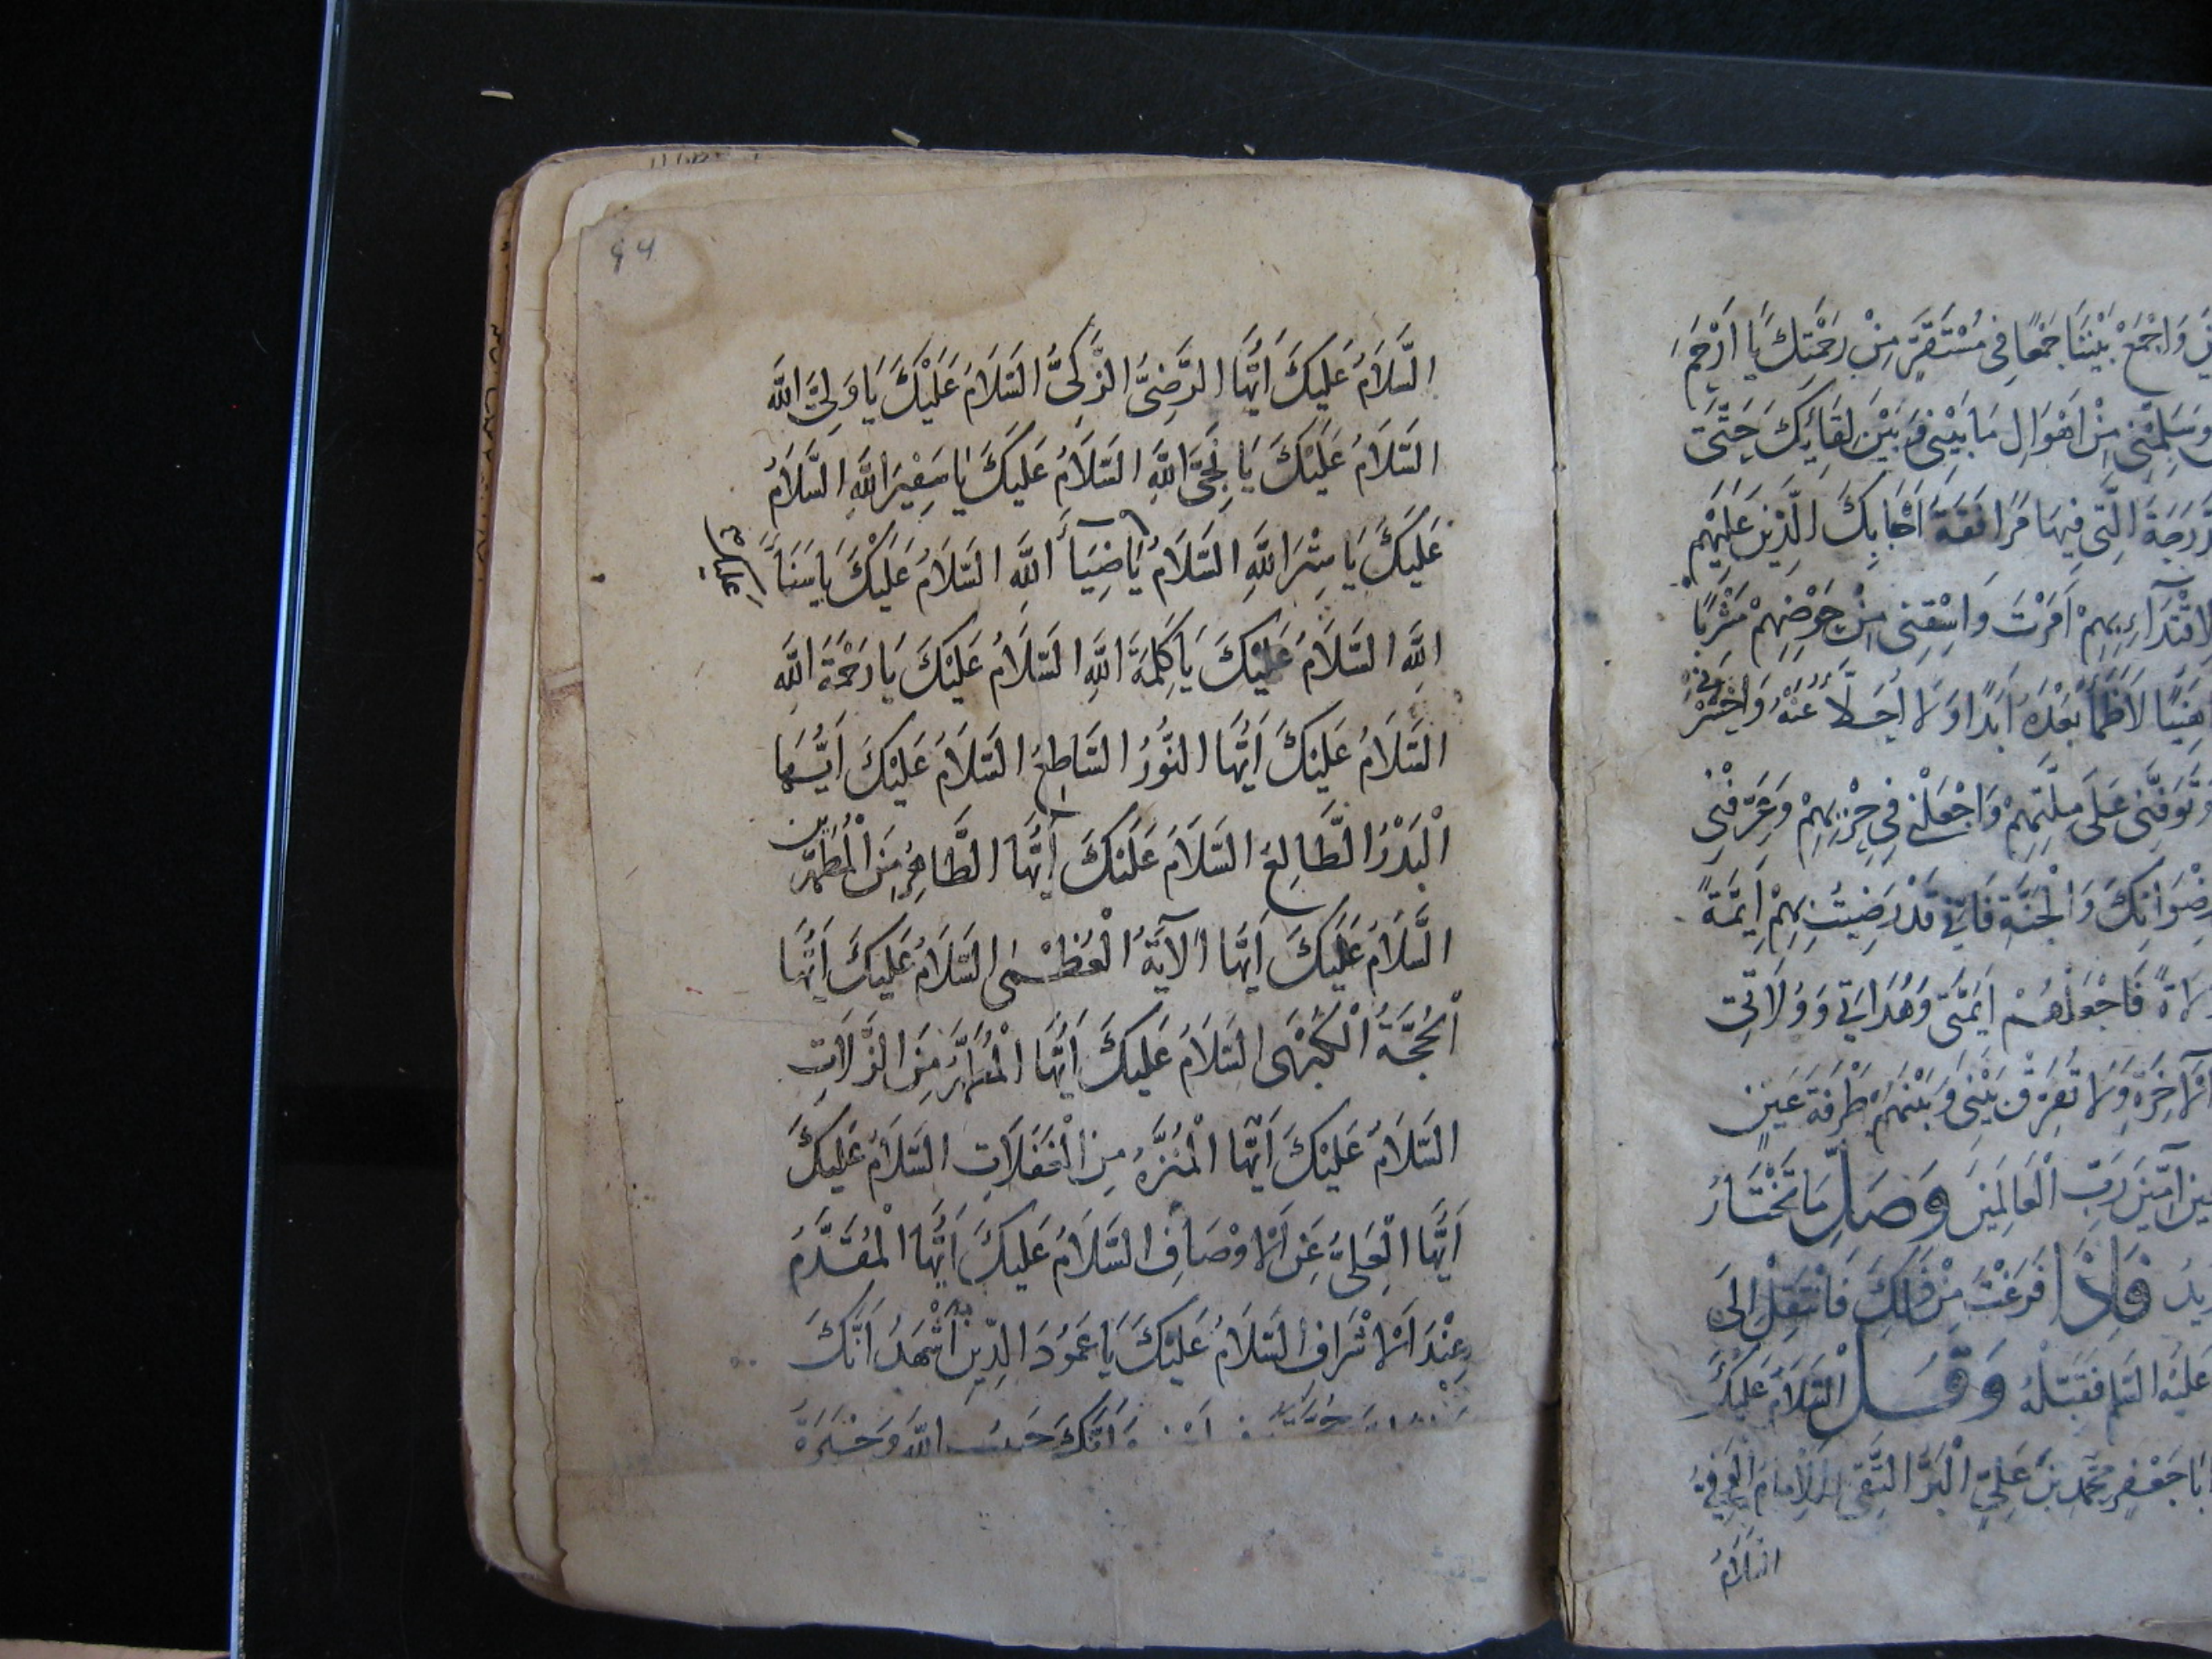 وَاجْمَعْ بَيْنَنَا جَمْعًا فِى مُسْتَقَرٍّ مِنْ رَحْمَتِكَ يَا اَرْحَمَ
وَسَلِّمْنِى مِنْ اَهْوَالِ مَا بَيْنِى وَبَيْنَ لِقَائِكَ حَتَّى
الَّتِى فِيهَا مُرَافَقَةُ اَحِبَّائِكَ الَّذِينَ عَلَيْهِمْ
بِهِمْ اَمَرْتَ وَاسْقِنِى مِنْ حَوْضِهِمْ مَشْرَبًا
لَا اَظْمَأُ بَعْدَهُ اَبَدًا وَلَا اُحَلَّأُ عَنْهُ وَاحْشُرْنِى
وَتَوَفَّنِى عَلَى مِلَّتِهِمْ وَاجْعَلْنِى فِى حِزْبِهِمْ وَعَرِّفْنِى
وَالْجَنَّةِ فَاِنِّى قَدْ رَضِيتُ بِهِمْ اَئِمَّةً
فَاجْعَلْهُمْ اَئِمَّتِى وَهُدَاتِى وَوُلَاتِى
وَلَا تُفَرِّقْ بَيْنِى وَبَيْنَهُمْ طَرْفَةَ عَيْنٍ
آمِينَ رَبَّ الْعَالَمِينَ وَصَلِّ مَا تَخْتَارُ
فَاِذَا فَرَغْتَ مِنْ ذَلِكَ فَانْتَقِلْ اِلَى
فَقَبِّلْهُ وَقُلْ السَّلَامُ عَلَيْكَ
جَعْفَرٍ مُحَمَّدَ بْنَ عَلِىٍّ الْبَرَّ التَّقِىَّ الْاِمَامَ الْوَفِىَّ
السَّلَامُ
94
السَّلَامُ عَلَيْكَ اَيُّهَا الرَّضِىُّ الزَّكِىُّ السَّلَامُ عَلَيْكَ يَا وَلِىَّ اللَّهِ
السَّلَامُ عَلَيْكَ يَا نَجِىَّ اللَّهِ السَّلَامُ عَلَيْكَ يَا سَفِيرَ اللَّهِ السَّلَامُ
عَلَيْكَ يَا سِرَّ اللَّهِ السَّلَامُ يَا ضِيَاءَ اللَّهِ السَّلَامُ عَلَيْكَ يَا سَنَاءَ
عليك
اللَّهِ السَّلَامُ عَلَيْكَ يَا كَلِمَةَ اللَّهِ السَّلَامُ عَلَيْكَ يَا رَحْمَةَ اللَّهِ
السَّلَامُ عَلَيْكَ اَيُّهَا النُّورُ السَّاطِعُ السَّلَامُ عَلَيْكَ اَيُّهَا
الْبَدْرُ الطَّالِعُ السَّلَامُ عَلَيْكَ اَيُّهَا الطَّاهِرُ مِنَ الْمُطَهَّرِينَ
السَّلَامُ عَلَيْكَ اَيُّهَا الْآيَةُ الْعُظْمَى السَّلَامُ عَلَيْكَ اَيُّهَا
الْحُجَّةُ الْكُبْرَى السَّلَامُ عَلَيْكَ اَيُّهَا الْمُطَهَّرُ مِنَ الزَّلَّاتِ
السَّلَامُ عَلَيْكَ اَيُّهَا الْمُنَزَّهُ مِنَ الْغَفَلَاتِ السَّلَامُ عَلَيْكَ
اَيُّهَا الْعَلِىُّ عَنِ الْاَوْصَافِ السَّلَامُ عَلَيْكَ اَيُّهَا الْمُقَدَّمُ
عِنْدَ الْاَشْرَافِ السَّلَامُ عَلَيْكَ يَا عَمُودَ الدِّينِ اَشْهَدُ اَنَّكَ
وَاَنَّكَ جَنْبُ اللَّهِ وَخِيَرَةُ